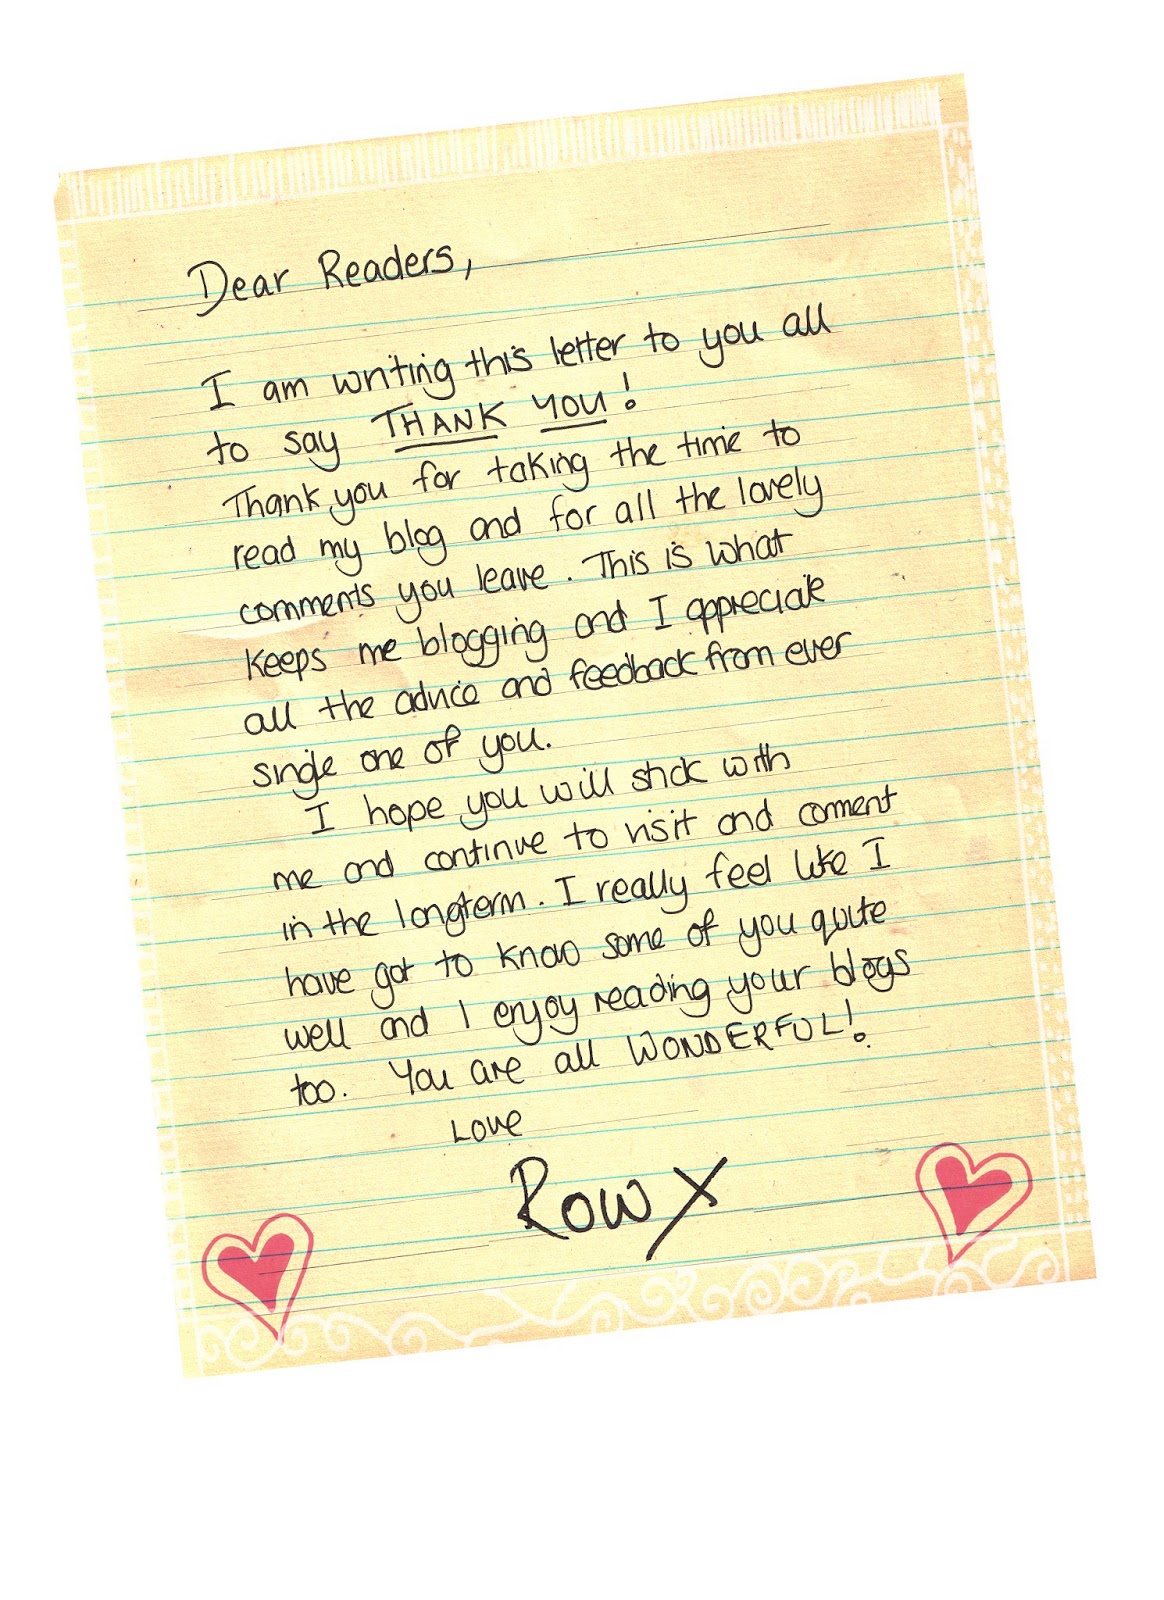 Dear Readers,
I am writing this letter to you all
to say THANK YOU!
Thank you for taking the time to
read my blog and for all the lovely
comments you leave. This is what
keeps me blogging and I appreciate
all the advice and feedback from ever
single one of you.
I hope you will stick with
me and continue to visit and comment
in the longterm. I really feel like I
have got to know some of you quite
well and I enjoy reading your blogs
too. You are all WONDERFUL!
Love
Row X